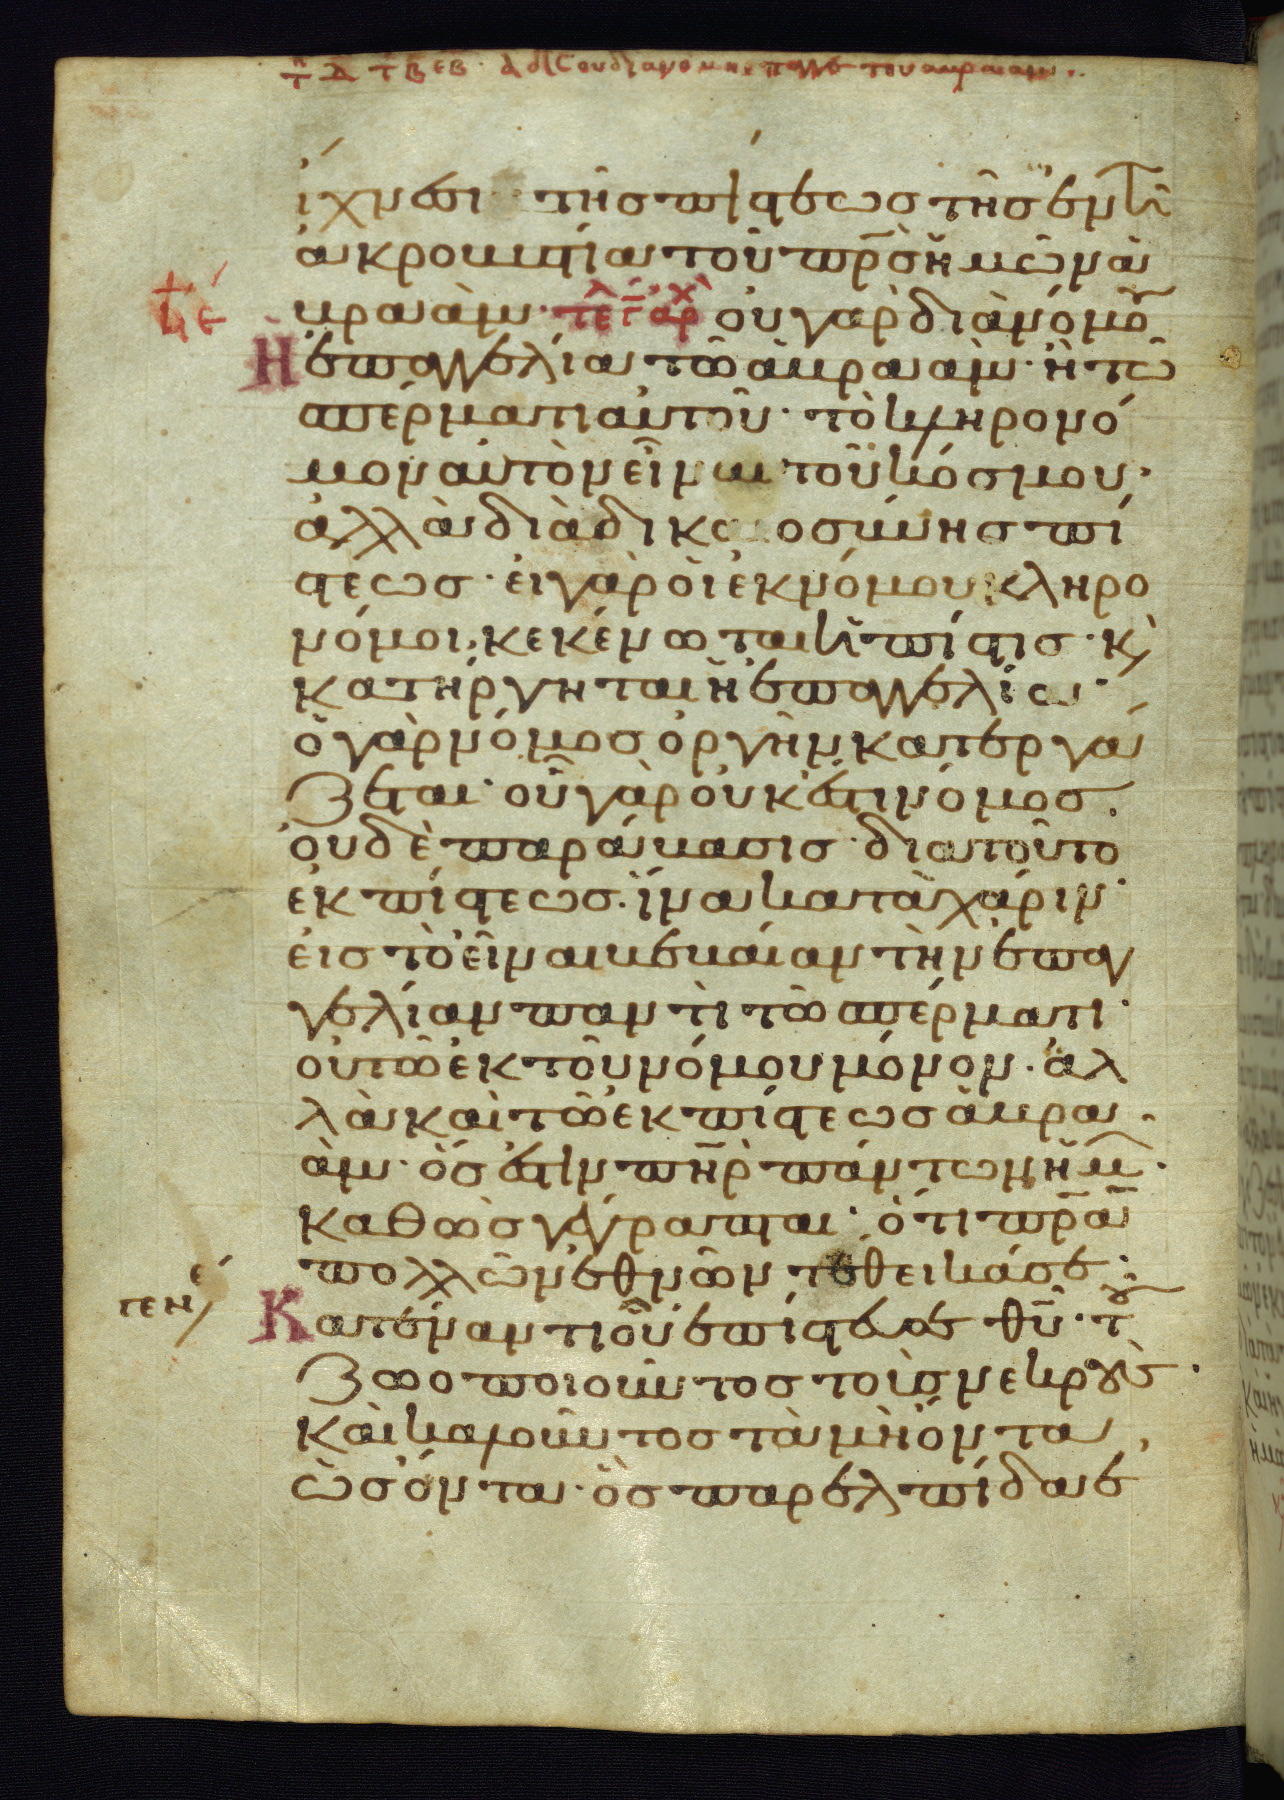 τῃ Δ τ εβ εβ αδ(ελφοι) ου δια νομου η επαγγε τω αβρααμ
ἴχνεσι τῆς πίστεως τῆς ἐν τῆ
ἀκροβυστία τοῦ πρ̅ς ἡμῶν ἀ
βραάμ· τε αρχ οὐ γὰρ διὰ νόμου
κε
Ἡ ἐπαγγελία τῶ ἀβραάμ· ἢ τῶ
σπέρματι αὐτοῦ· τὸ κληρονό
μον αὐτὸν εἶναι τοῦ κόσμου·
ἀλλὰ διὰ δικαιοσύνης πί
στεως· εἰ γὰρ ὁι ἐκ νόμου κληρο
νόμοι, κεκένωται ἡ πίστις· κ(αὶ)
κατήργηται ἡ ἐπαγγελία·
ὁ γὰρ νόμος ὀργὴν κατεργά
ζεται· οὗ γὰρ οὐκ ἔστι νόμος.
οὐδὲ παράβασις· διατοῦτο
ἐκ πίστεως. ἵνα κατὰ χάριν·
εἰς τὸ εἶναι βεβαίαν τὴν ἐπαγ
γελίαν παντὶ τῶ σπέρματι·
οὐ τῶ ἐκ τοῦ νόμου μόνον. ἀλ
λὰ καὶ τῶ ἐκ πίστεως ἀβρα
άμ· ὅς ἐστιν πη̅ρ πάντων ἡμῶν·
καθὼς γέγραπται· ὅτι πρ̅α
πολλῶν ἐθνῶν τέθεικά σε·
γεν
Κατέναντι οὗ ἐπίστευσε θυ̅· τοῦ
ζωοποιοῦντος τοὺς νεκρούς·
καὶ καλοῦντος τὰ μὴ ὄντα,
ὡς ὄντα· ὃς παρ ἐλπίδα ἐ